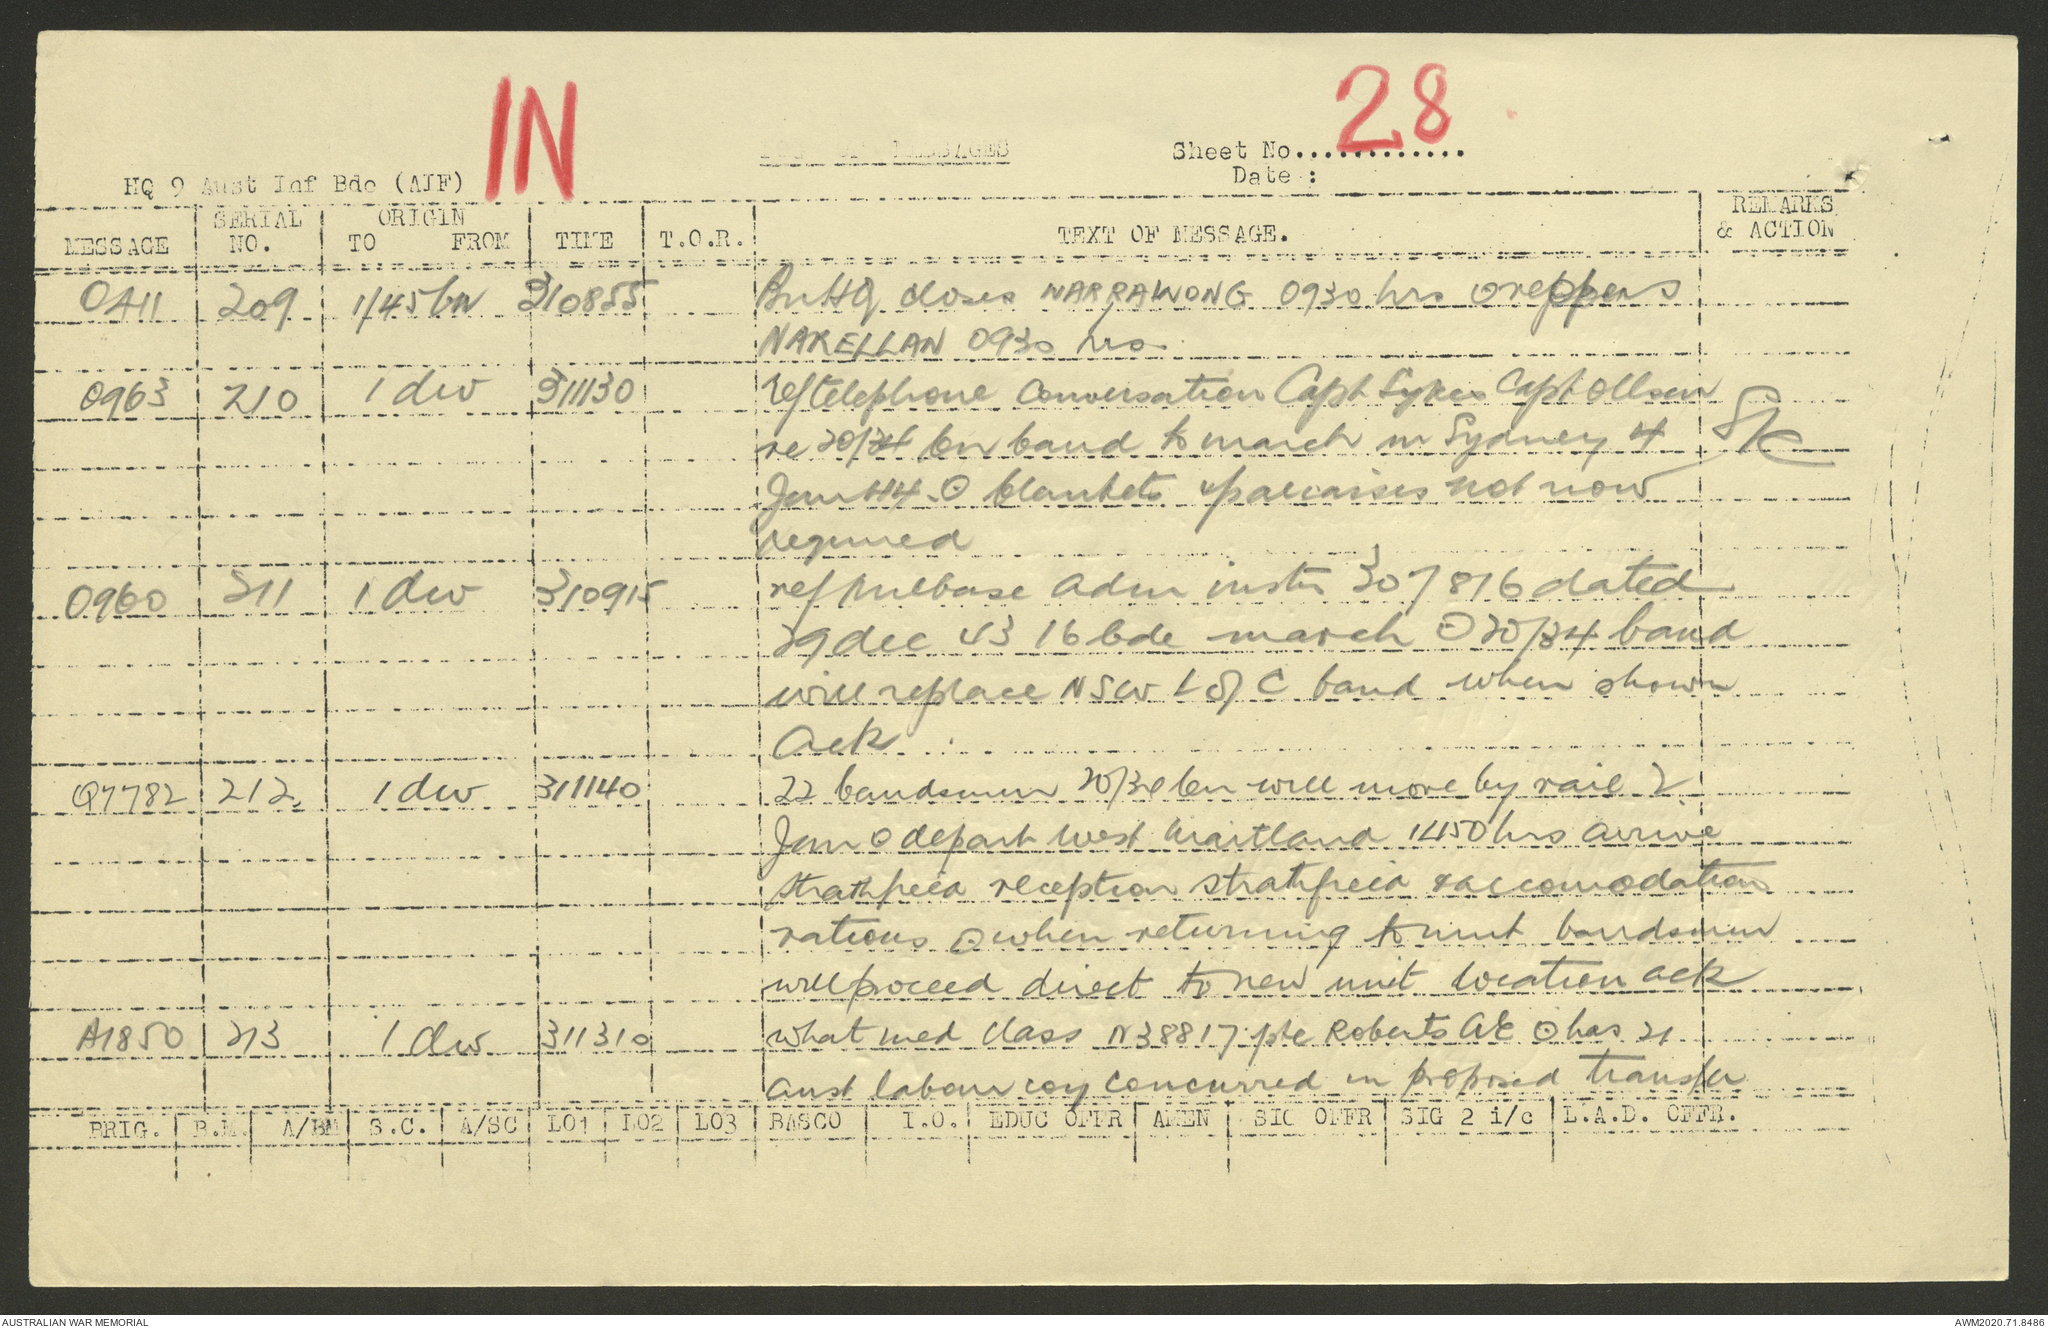 IN
28
LOG OF MESSAGES
Sheet No.............
Date :
HQ 9 Aust Inf Bde (AIF)
MESSAGE SERIAL NO. ORIGIN TO FROM TIME T.O.R. TEXT OF MESSAGE. REMARKS & ACTION
OA11 209 1/45 bn 310855 Bn HQ closes WARRAWONG 0930 hrs O reopens
NARELLAN 0930 hrs
O963 210 1 div 311130 ref telephone conversation Capt Sykes Capt Ollsen
re 20/34 bn band to march in Sydney 4
Jan 44 O blankets & palliasses not now
required
O960 211 1 div 310915 ref adm instr 307876 dated
29 dec 43 16 bde march O 20/34 band
will replace NSW L of C band when shown
ack
Q7782 212 1 div 311140 22 bandsmen 20/34 bn will move by rail 2
Jan O depart West Maitland 1450 hrs arrive
Strathfield reception Strathfield & accomodation
rations O when returning to unit bandsmen
will proceed direct to new unit location ack
A1850 213 1 div 311310 what med class N38817 pte Roberts AE O has 21
aust labour coy concurred in proposed transfer
BRIG. B.M. A/BM S.C. A/SC LO1 LO2 LO3 BASCO I.O. EDUC OFFR AMEN SIG OFFR SIG 2 i/c L.A.D. OFFR.
AUSTRALIAN WAR MEMORIAL
AWM2020.71.8486